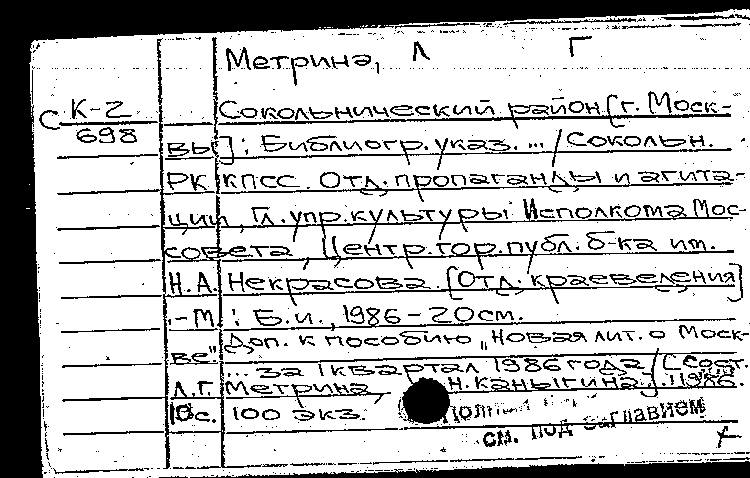 Метрина, Л Г
С К-2 Сокольнический район [г. Моск-
698 вы]: Библиогр. указ. ... / Сокольн.
РК КПСС. Отд. пропаганды и агита-
ции, Гл. упр. культуры Исполкома Мос-
совета, Центр. гор. публ. б-ка им.
Н.А. Некрасова. [Отд. краеведения]
-М.: Б.и., 1986 - 20см.
Доп. к пособию „Новая лит. о Моск-
ве" ... за I квартал 1986 года / [Сост.
Л.Г. Метрина, Н. Каныгина]. 1986.
18с. 100 экз.
см. под заглавием